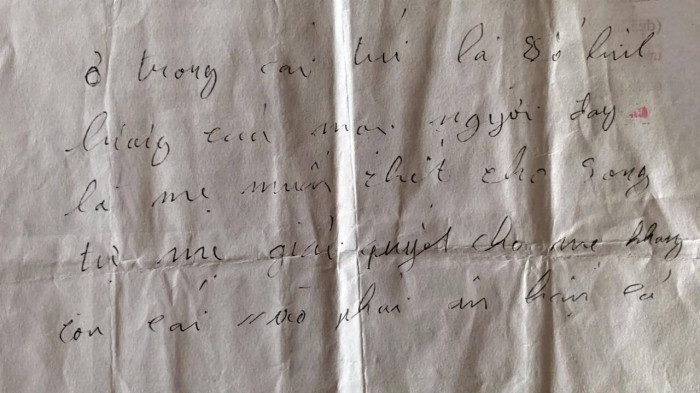 ở trong cái tủ là số linh
của mọi người đay
là mẹ muốn chết cho song
tự mẹ giải quyết cho mẹ khong
còn cái nào phải ân hận cả